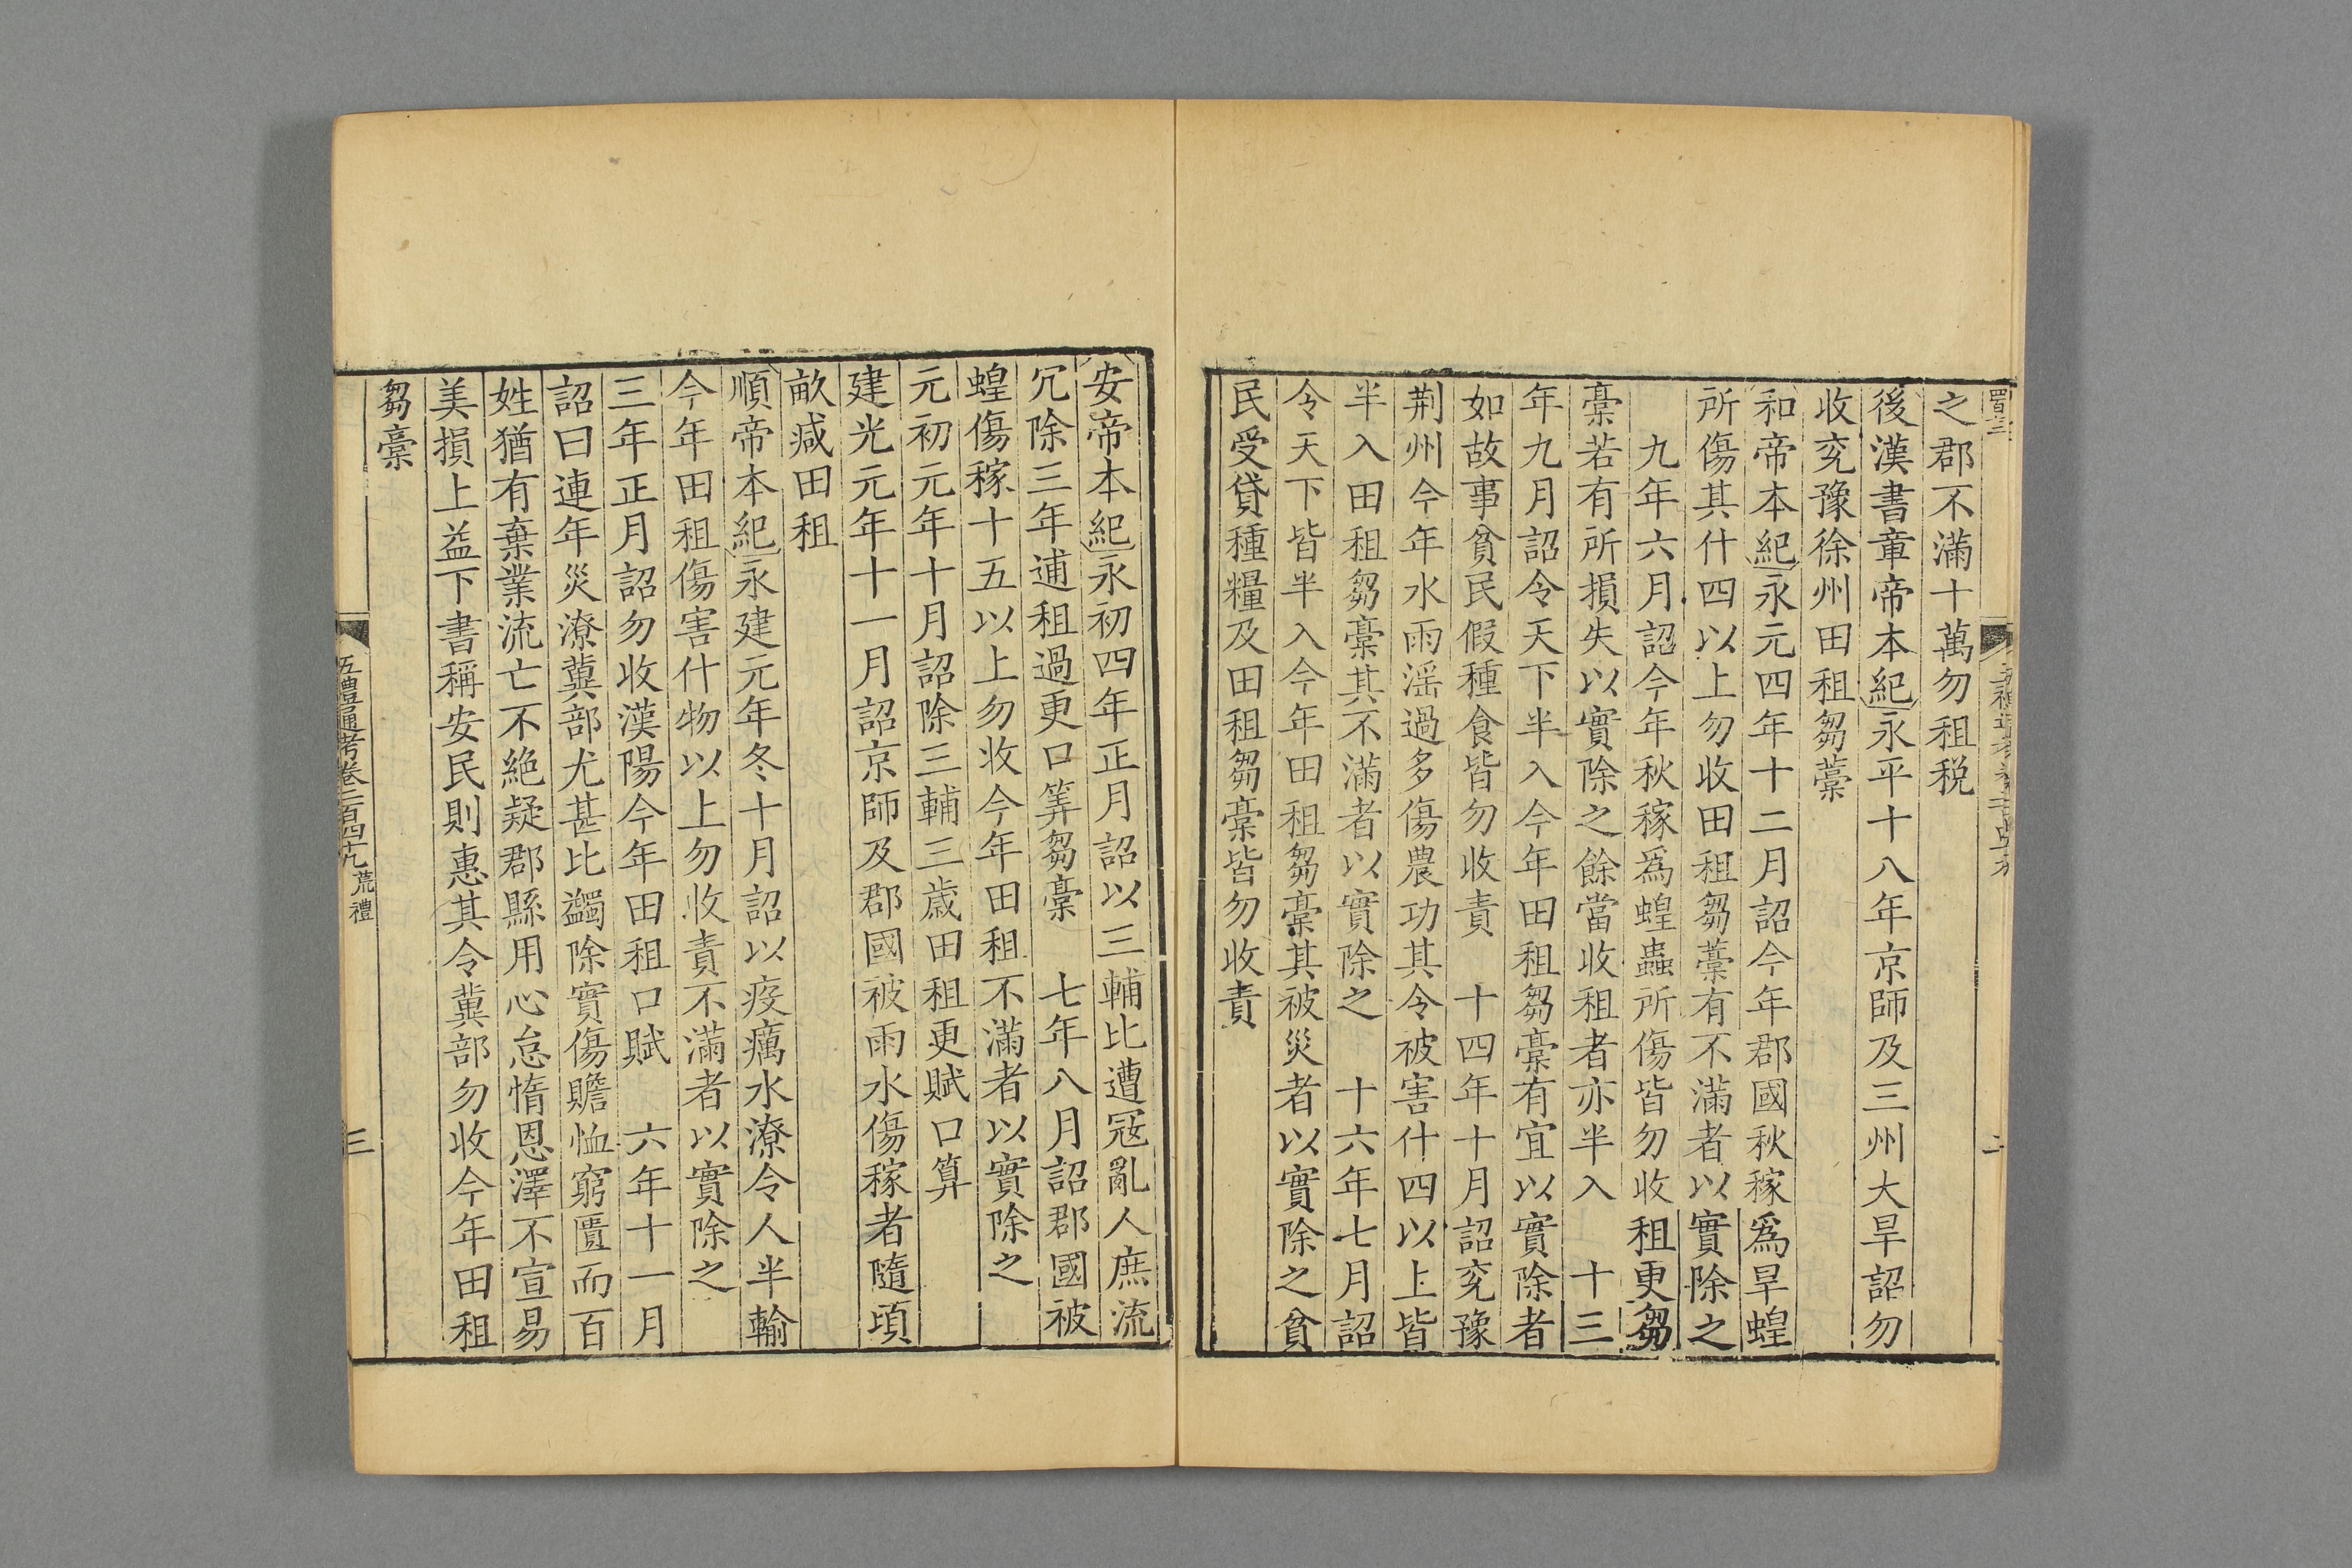 之郡不滿十萬勿租税
後漢書章帝本紀永平十八年京師及三州大旱詔勿
收兖豫徐州田租芻藁
和帝本紀永元四年十二月詔今年郡國秋稼爲旱蝗
所傷其什四以上勿收田租芻藁有不滿者以實除之
九年六月詔今年秋稼爲蝗蟲所傷皆勿收租更芻
稾若有所損失以實除之餘當收租者亦半入 十三
年九月詔令天下半入今年田租芻稾有宜以實除者
如故事貧民假種食皆勿收責 十四年十月詔兖豫
荆州今年水雨淫過多傷農功其令被害什四以上皆
半入田租芻稾其不滿者以實除之 十六年七月詔
令天下皆半入今年田租芻稾其被災者以實除之貧
民受貸種糧及田租芻稾皆勿收責
安帝本紀永初四年正月詔以三輔比遭寇亂人庶流
冗除三年逋租過更口筭芻稾 七年八月詔郡國被
蝗傷稼十五以上勿收今年田租不滿者以實除之
元初元年十月詔除三輔三歲田租更賦口算
建光元年十一月詔京師及郡國被雨水傷稼者隨頃
畝減田租
順帝本紀永建元年冬十月詔以疫癘水潦令人半輸
今年田租傷害什物以上勿收責不滿者以實除之
三年正月詔勿收漢陽今年田租口賦 六年十一月
詔曰連年災潦冀部尤甚比蠲除實傷贍恤窮匱而百
姓猶有棄業流亡不絶疑郡縣用心怠惰恩澤不宣易
美損上益下書稱安民則惠其令冀部勿收今年田租
芻稾
五禮通考卷二百四十九 荒禮
三